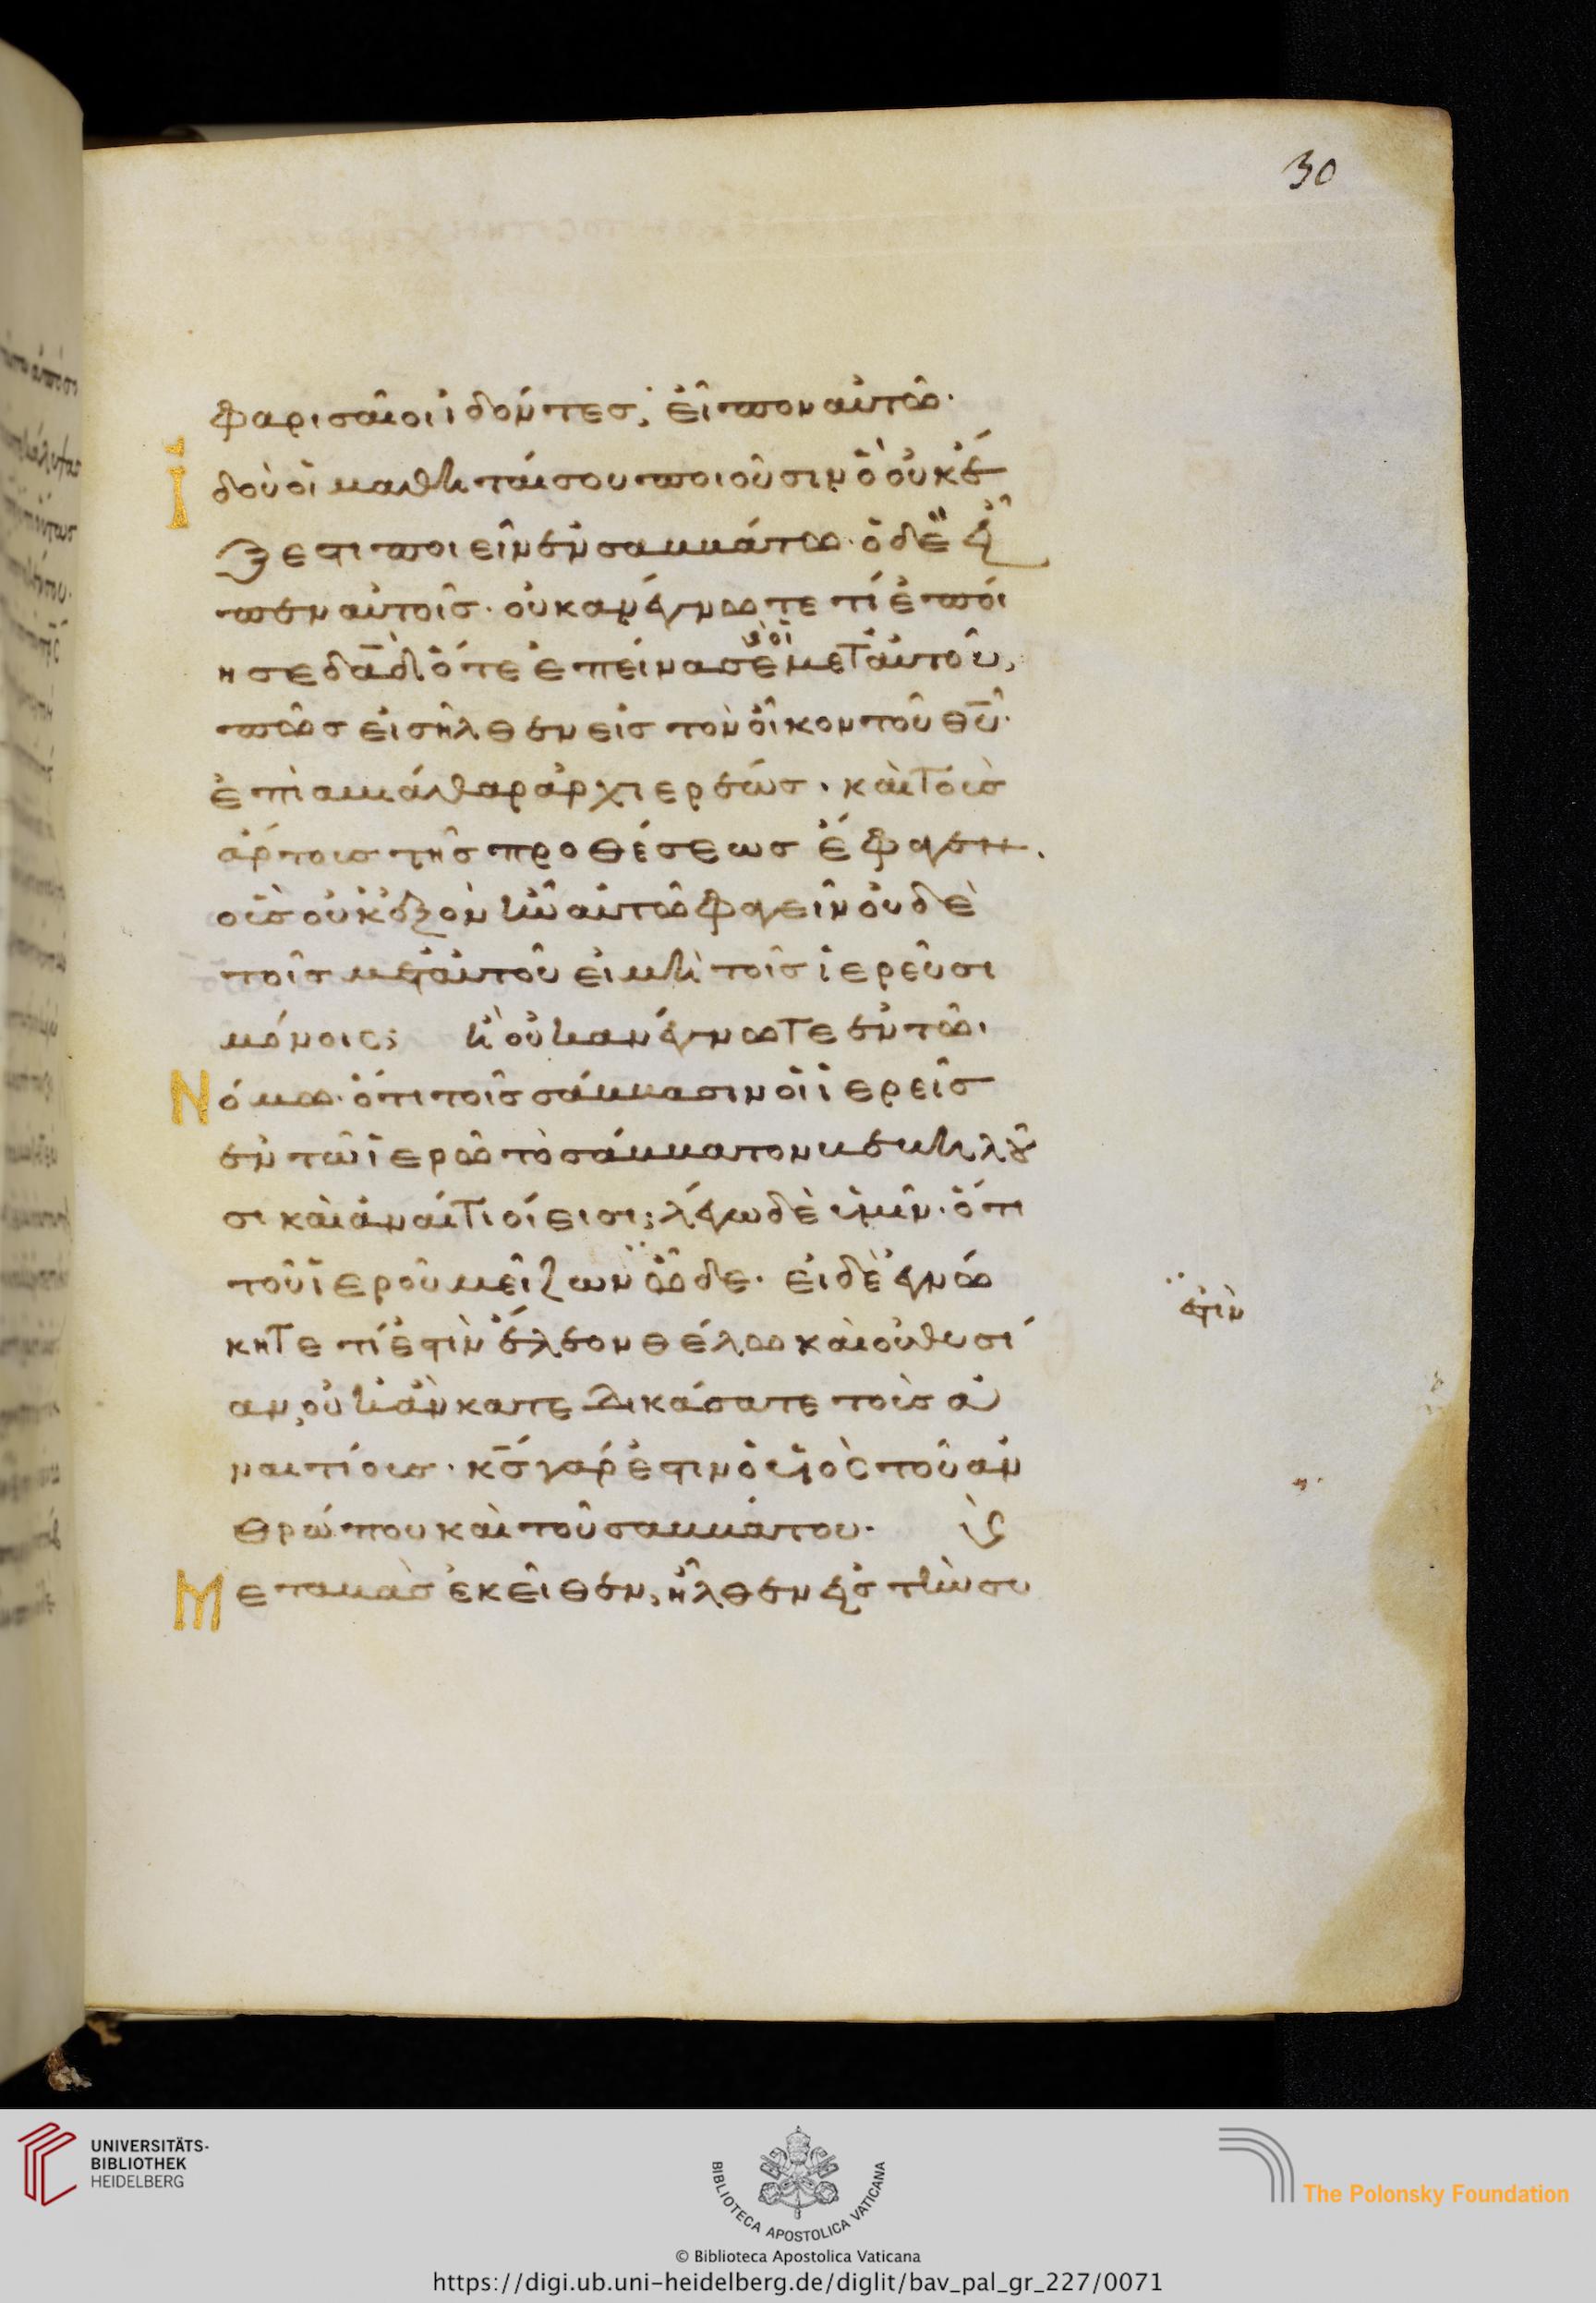 30
φαρισαῖοι ἰδόντες, εἶπον αὐτῶ·
Ἰδοὺ οἱ μαθηταί σου ποιοῦσιν ὃ οὐκ ἔ
ξεστι ποιεῖν ἐν σαββάτω· ὁ δὲ εἶ
πεν αὐτοῖς· οὐκ ἀνέγνωτε τί ἐποί
ησε δα̅δ ὅτε ἐπείνασε καὶ οἱ μετ' αὐτοῦ,
πῶς εἰσῆλθεν εἰς τὸν οἶκον τοῦ θ̅υ̅·
ἐπὶ ἀβιάθαρ ἀρχιερέως· καὶ τοὺς
ἄρτους τῆς προθέσεως ἔφαγεν,
οὓς οὐκ ἐξὸν ἦν αὐτῶ φαγεῖν οὐδὲ
τοῖς μετ' αὐτοῦ εἰ μὴ τοῖς ἱερεῦσι
μόνοις; ἢ οὐκ ἀνέγνωτε ἐν τῶ
Νόμω· ὅτι τοῖς σάββασιν οἱ ἱερεῖς
ἐν τῶ ἱερῶ τὸ σάββατον βεβηλοῦ
σι καὶ ἀναίτιοί εισι; λέγω δὲ ὑμῖν· ὅτι
τοῦ ἱεροῦ μεῖζων ὧδε· εἰ δὲ ἐγνώ
κητε τί ἐστὶν ἔλεον θέλω καὶ οὐ θυσί
αν, οὐκ ἂν κατεδικάσατε τοὺς ἀ
ναιτίους· κ̅ς̅ γάρ ἐστιν ὁ υἱὸς τοῦ ἀν
θρώπου καὶ τοῦ σαββάτου·
Μεταβὰς ἐκεῖθεν, ἦλθεν εἰς τὴν συ
ἐστὶν
UNIVERSITÄTS-
BIBLIOTHEK
HEIDELBERG
BIBLIOTECA APOSTOLICA VATICANA
The Polonsky Foundation
© Biblioteca Apostolica Vaticana
https://digi.ub.uni-heidelberg.de/diglit/bav_pal_gr_227/0071